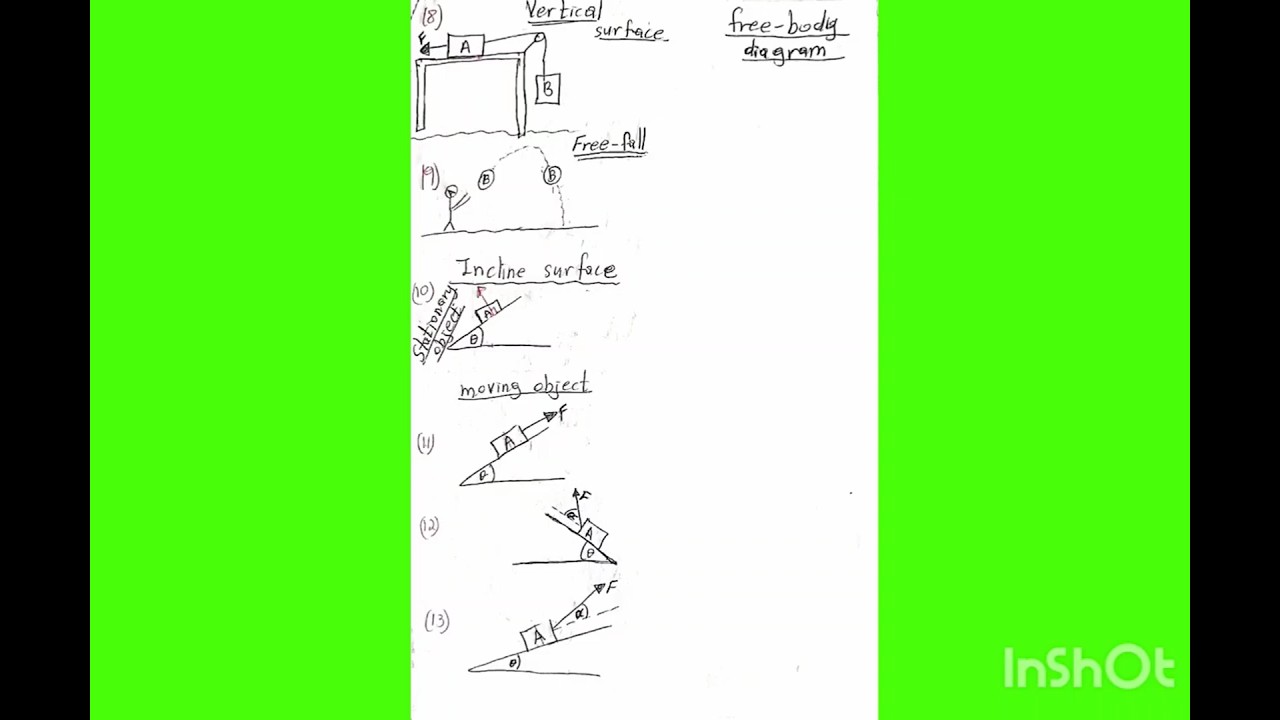 (8)
Vertical
surface
free-body
diagram
F
A
B
Free-fall
(9)
B
B
Incline surface
(10)
Stationary
object
A
θ
moving object
(11)
F
A
θ
(12)
F
α
A
θ
(13)
F
α
A
θ
InShOt